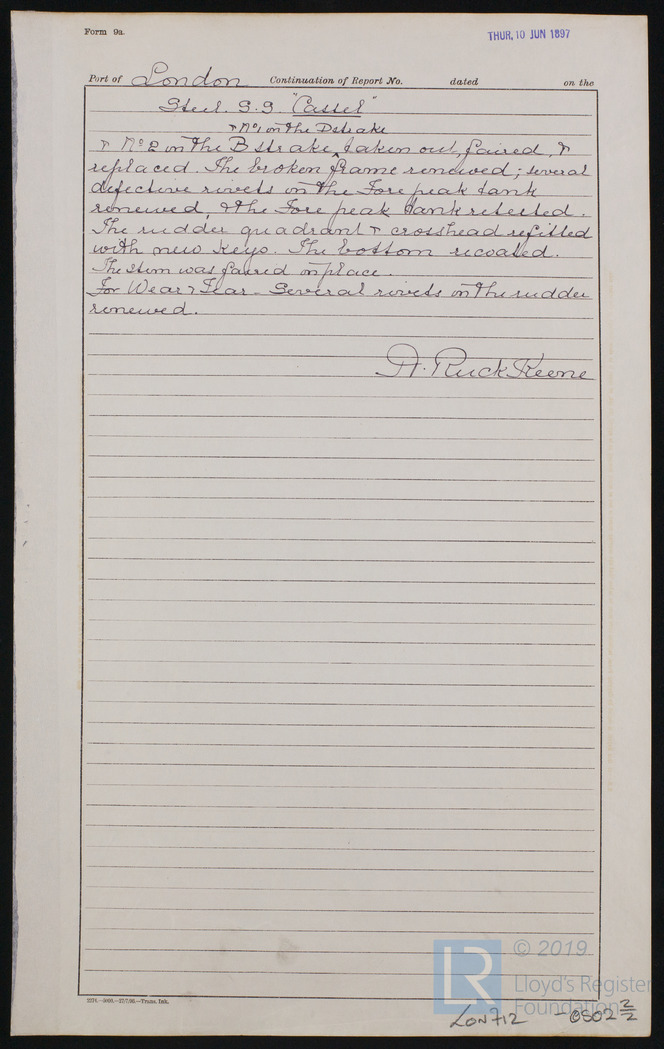 Form 9a.
THUR, 10 JUN 1897
Port of London Continuation of Report No. dated on the
Steel S.S. "Cassel"
& No 1 on the D strake
& No 2 on the B strake ‸ taken out, faired, &
replaced. The broken frame renewed; several
defective rivets in the Fore peak tank
renewed, & the Fore peak tank retested.
The rudder quadrant & crosshead refitted
with new keys. The bottom recoated.
The stem was faired in place.
For Wear & Tear - Several rivets in the rudder
renewed.
H. Ruck Keene
© 2019
LR
Lloyd's Register
Foundation
LON712 - 0502 2/2